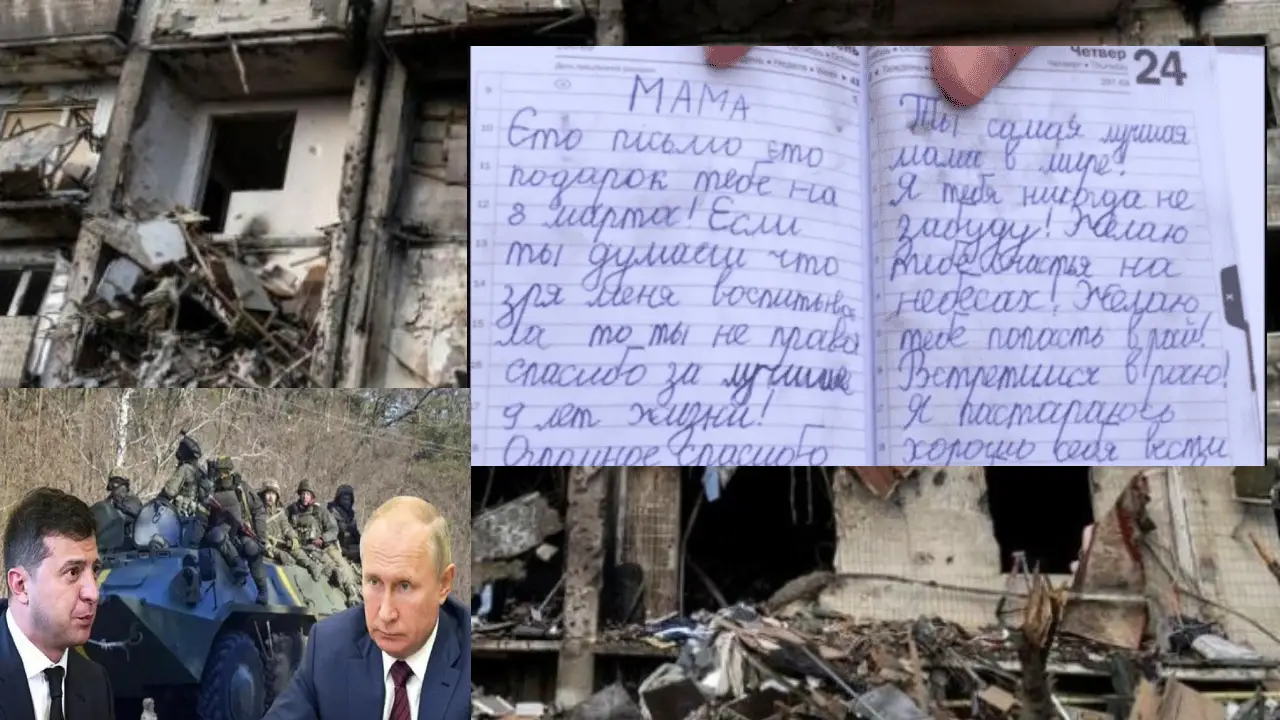 МАМА
Єто письмо єто
подарок тебе на
8 марта! Если
ты думаеш что
зря меня воспитыва
ла то ты не права
спасибо за лучшие
9 лет жизни!
Огромное спасибо
Четвер 24
Четвер • Thursday
Ты самая лучшая
мама в мире!
Я тебя никогда не
забуду! Желаю
тебе счастья на
небесах! Желаю
тебе попасть в рай!
Встретимся в раю!
Я пастараюсь
хорошо себя вести